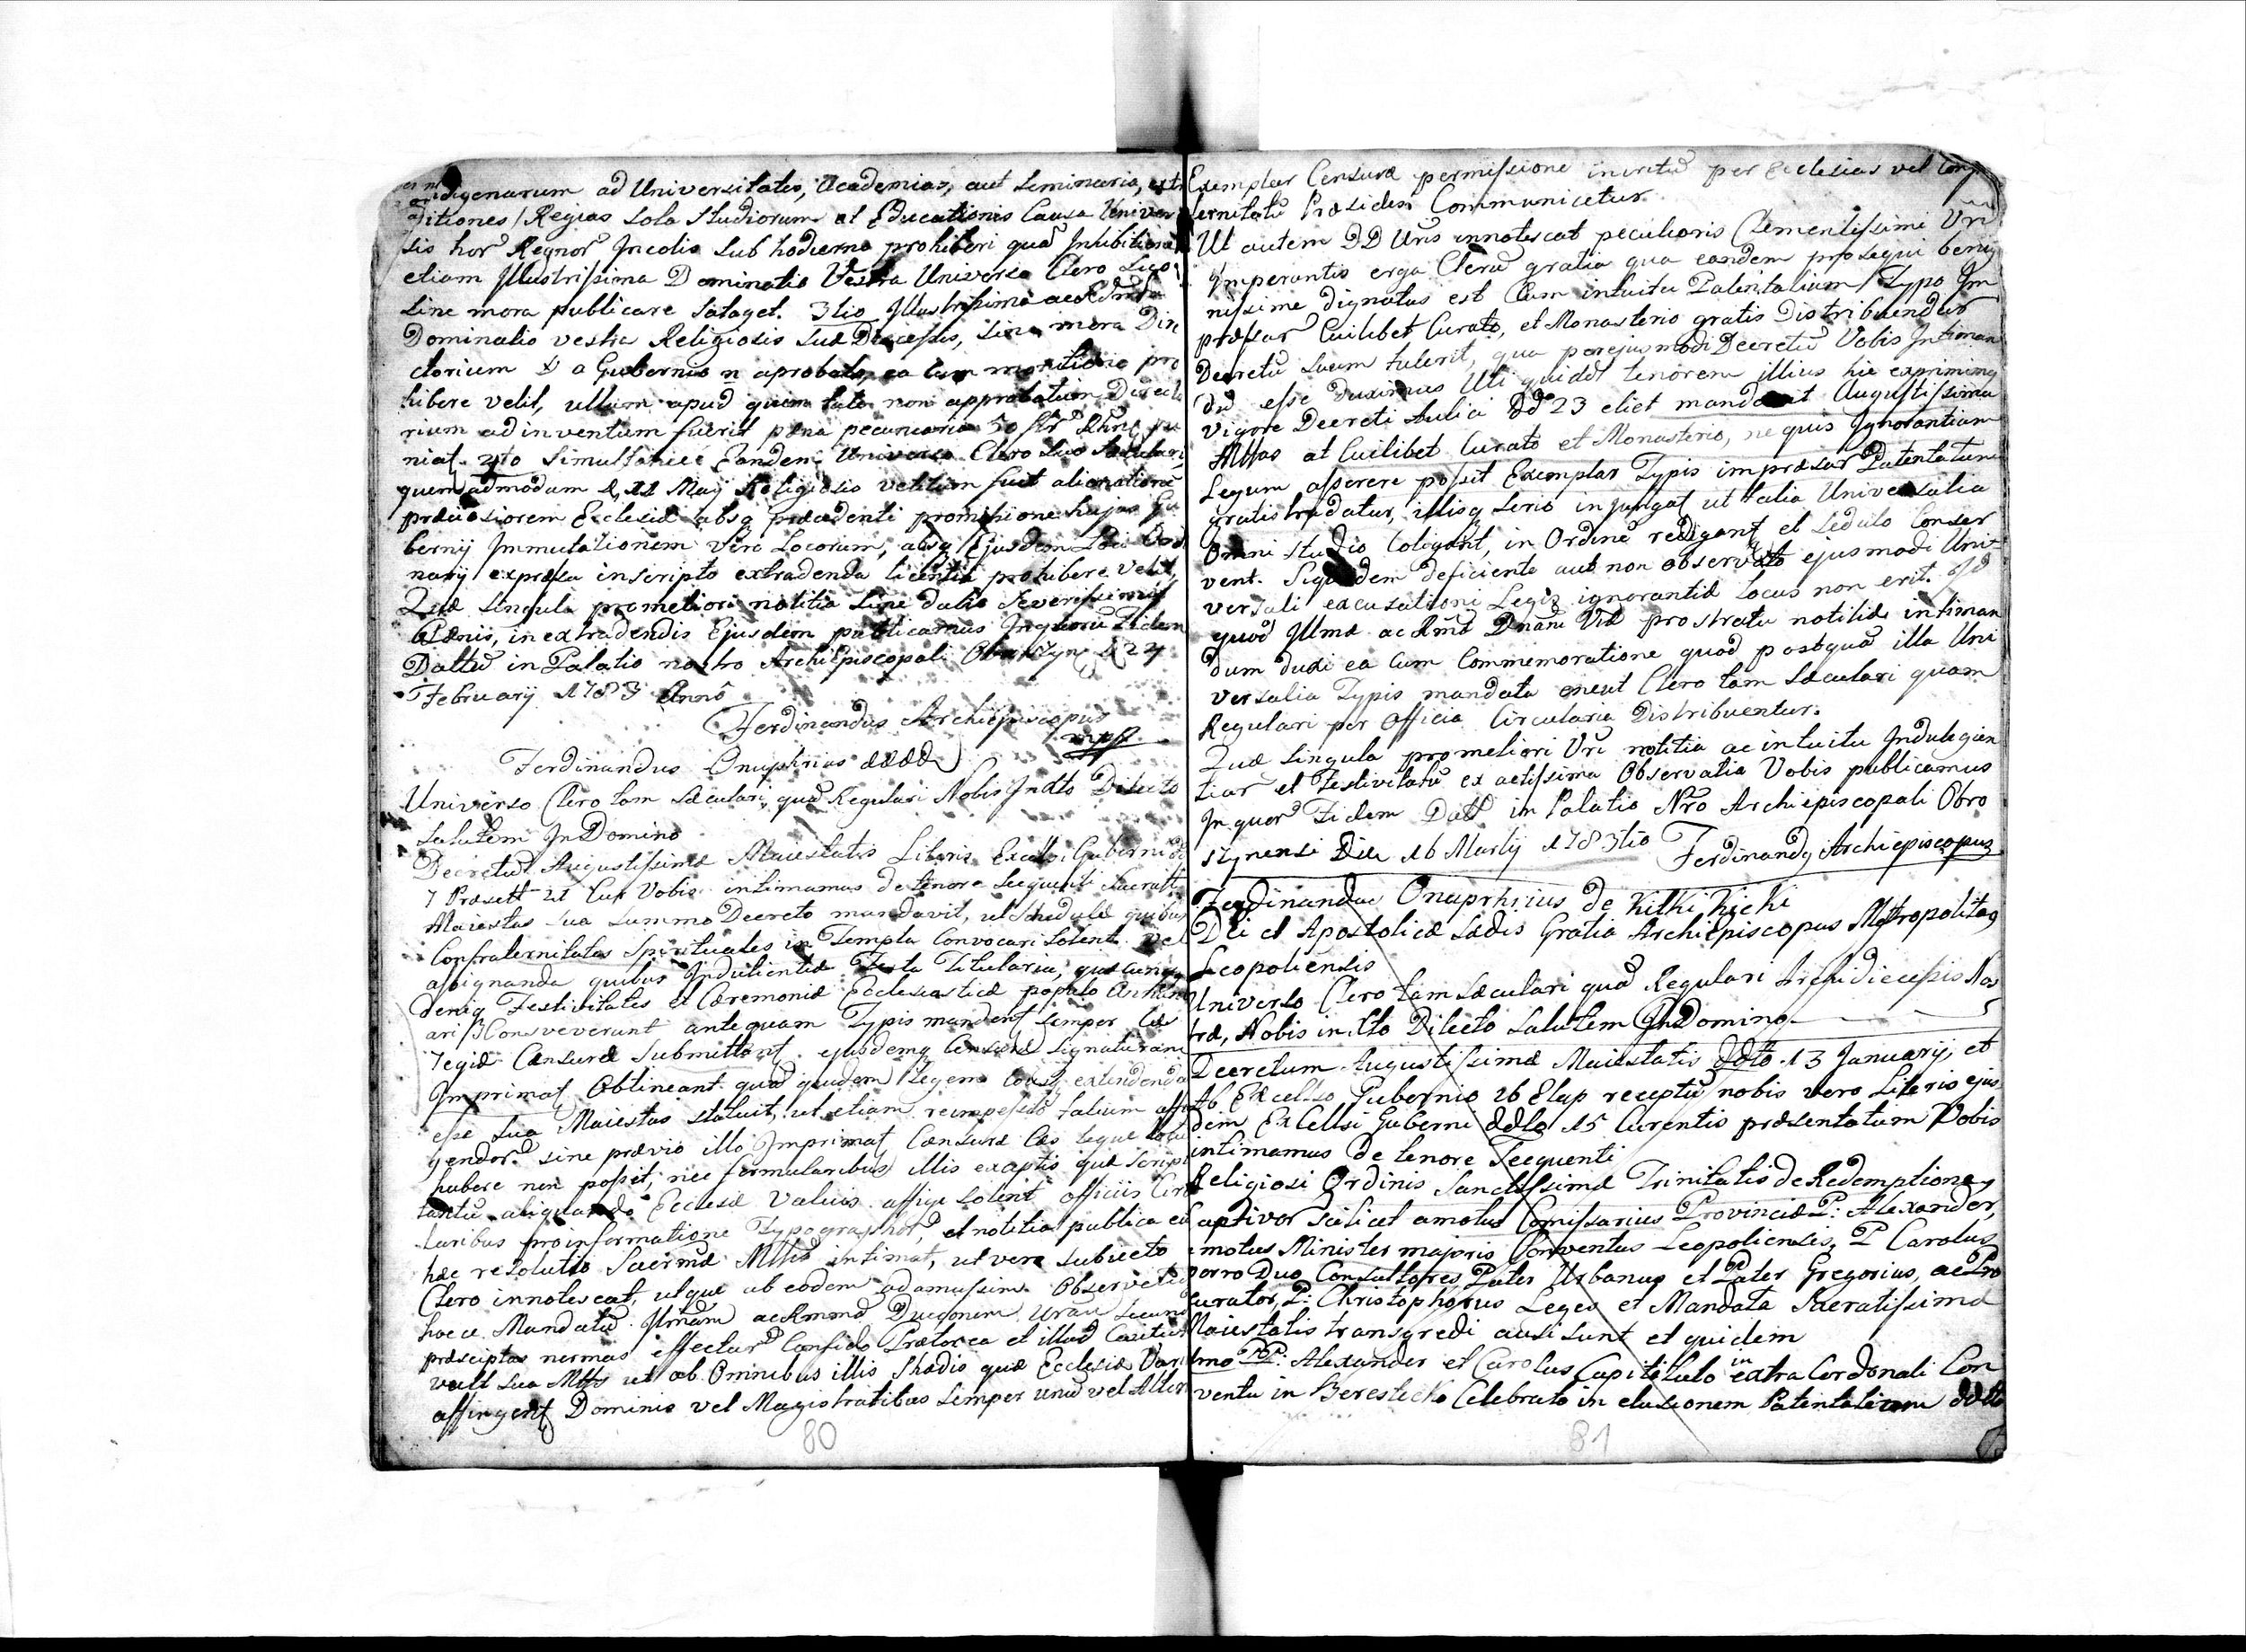 indigenarum ad Universitates, Academias, aut Seminaria, extr
ditiones / Regias Sola Studiorum et Educationis Causa Univer
sis hor Regnor Incolis sub hodierno prohiberi qua Inhibitione
etiam Illustrissima Dominatio Vestra Universo Clero Suo
sine mora publicare sataget. 3tio Illustrissima ac
Dominatio vestra Religiosis Suae Diecesis, sine mora Dire
ctorium a Gubernio n aprobato, ea cum mentione pro
hibere velit, ullum apud quem tale non approbatum Directo
rium adinventum fuerit paena pecuniaria 50 flr Rhn pu
niat. 4to Simultanee Eandem Universo Clero Suo Saeculari,
quemadmodum 11 Maij Religiosis vetitum fuit alienatione
praeciosiorem Ecclesiae absq praecedenti promissione hujus Gu
bernij Immutationem vero Locorum, absq Ejusdem Loci Ordi
narij expressa inscripto extradenda licentia prohibere velit
Quae singula prometiori notitia Sine dubio Severissimis
Paenis, in extradendis Ejusdem publicamus Inquorum Fidem
Dattu in Palatio nostro ArchiEpiscopali 24
February 1783 Anno
Ferdinandus Archiepiscopus
mpp
Ferdinandus Onuphrius &&&&
Universo Clero tam Saeculari, qua Regulari Nobis Indto Dilecto
Salutem In Domino
Decretum Augustissimae Maiestatis Literis Excelsi Gubernij
7 Praesett ut Vobis intimamus de tenore Sequenti Sacratt
Maiestas sua summo Decreto mandavit, ut Schedulae quibus
Confraternitates Spirituales in Templa Convocari Solent vel
assignanda quibus Indulientiae Festa Titularia, quaecunq
deniq Festivitates et Caeremoniae Ecclesiasticae populo
ari Consveverunt antequam Typis mandent semper Cae
regiae Censurae Submittant ejusdemq Censurae Signaturam
Imprimat Obtineant. qua quidem legem eousq extendenda
esse Sua Maiestas statuit, ut etiam talium affi
gendor sine praevio illo Imprimat Censurae Caes
habere non possit, nec formularibus illis exaptis quae Script
tantu aliquando Ecclesiae Valvis affigi Solent officiis Circ
laribus proinformatione Typographor, et notitia publica
haec resolutio Sacrmae Mttis intimat, ut vero subiecto
Clero innotescat, utque ab eodem adamussim Observetur
hocce Mandatu Illmam ac Rmma secund
praesciptas normas effectur Confido Praeterea et illud
vult sua Mttas ut ab Omnibus illis Shedis quae Ecclesiae Vari
affingent Dominis vel Magistratibus Semper unu vel Alter
80
Exemplar Censurae permissione inuritu per Ecclesias vel Conf
ternitatu Praesides Communicetur.
Ut autem DD Uris innotescat peculiaris Clementissimi Uri
Imperantis erga Cleru gratia qua eandem prosequi benig
nissime dignatus est Cum intuitu Patentalium / Typo Im
praessar Cuilibet Curato, et Monasterio gratis Distribuendar
Decretu Suum tulerit, qua perejusmodi Decretu Vobis Intiman
du esse duximus Uti quidet tenorem illius hic exprimimq
Vigore Decreti Aulici dd 23 eliet mandavit Augustissima
Mttas at Cuilibet Curato et Monasterio, ne quis Ignorantiam
Legum asserere possit Exemplar Typis impraessar Patentatium
gratis tradatur, illisq Serio injungat ut talia Universalia
Omni Studio Coligant, in Ordine redigant et Sedulo Conser
vent. Siquidem deficiente aut non observato ejusmodi Uni
versali excusationi Legis ignorantiae locus non erit. Id
quod Illmae ac Rmae Dnani Vrae prostratu notitiae intiman
dum duxi ea Cum Commemoratione quod postqua illa Uni
versalia Typis mandata erent Clero tam Saeculari quam
Regulari per Officia Circularia Distribuentur.
Quae singula prometiori Uri notitia ac intuitu Indulgien
tiar et Festivitatu exactissima Observatia Vobis publicamus
In quor Fidem Datt in Palatio Nro Archiepiscopali Obro
szynensi Die 16 Martij 1783tio Ferdinandq Archiepiscopus
Ferdinandus Onuprhrius de Kitki Kicki
Dei et Apostolicae Saedis Gratia Archiepiscopus Metropolitaq
Leopoliensis
Universo Clero tam Saeculari qua Regulari Archidiecesis Nos
trae, Nobis in Cto Dilecto Salutem In Domino
Decretum Augustissimae Maiestatis ddto 13 January, et
Ab Excelso Gubernio 26 Elap receptu nobis vero Literis ejus
dem Excellsi Guberni ddto 15 Curentis praesentatum Vobis
intimamus de tenore Seequenti
Religiosi Ordinis Sanctissimae Trinitatis de Redemptione
Captivor scilicet amotus Comissarius Provinciae P: Alexander,
amotus Minister majoris Conventus Leopoliensis, P Carolus
porro Duo Consultores Pater Urbanus et Pater Gregorius, ac Pro
curator, P: Christophorus Leges et Mandata Sacratissimae
Maiestatis transgredi ausi sunt et quidem
Imo PP: Alexander et Carolus Capitulo in extra Cordonali Con
ventu in Berestecko Celebrato in elusionem Patentalium ddto
81